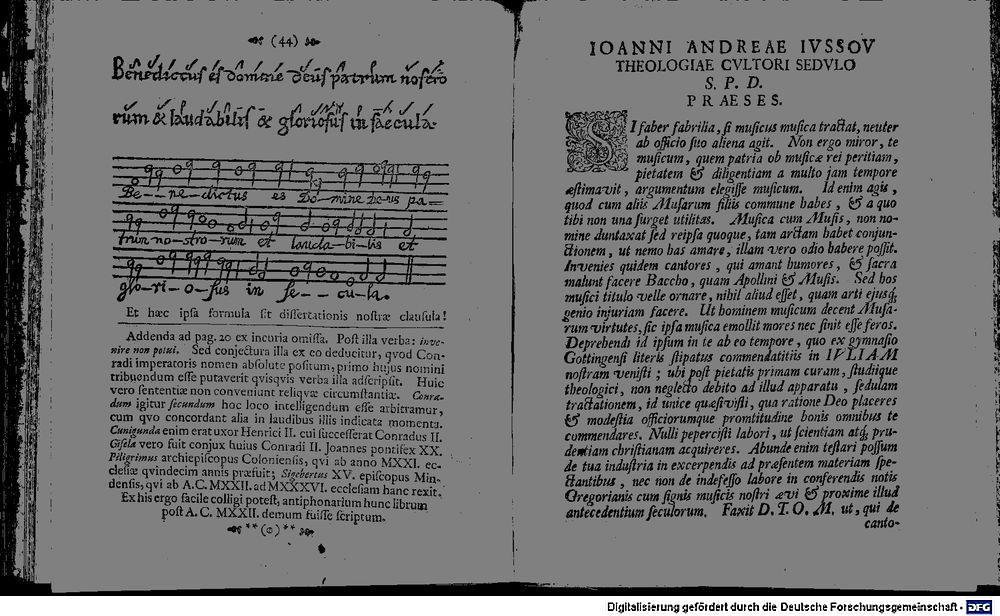 (44)
Benedictus es domine deus patrum nostro
rum & laudabilis & gloriosus in saecula.
Be--ne-dictus es Do-mine De-us pa=
trum no-stro-rum et laudabi-lis et
glo-ri-o-sus in se--cu-la.
Et hæc ipsa formula sit dissertationis nostræ clausula!
Addenda ad pag. 20 ex incuria omissa. Post illa verba: inve-
nire non potui. Sed conjectura illa ex eo deducitur, qvod Con-
radi imperatoris nomen absolute positum, primo hujus nomini
tribuendum esse putaverit qvisqvis verba illa adscripsit. Huic
vero sententiæ non conveniunt reliqvæ circumstantiæ. Conra-
dum igitur secundum hoc loco intelligendum esse arbitramur,
cum qvo concordant alia in laudibus illis indicata momenta.
Cunigunda enim erat uxor Henrici II. cui successerat Conradus II.
Gisela vero fuit conjux huius Conradi II. Joannes pontifex XX.
Piligrimus archiepiscopus Coloniensis, qvi ab anno MXXI. ec-
clesiæ qvindecim annis præfuit; Sigebertus XV. episcopus Min-
densis, qvi ab A.C. MXXII. ad MXXXVI. ecclesiam hanc rexit.
Ex his ergo facile colligi potest, antiphonarium hunc librum
post A. C. MXXII. demum fuisse scriptum.
**(o)**
IOANNI ANDREAE IVSSOV
THEOLOGIAE CVLTORI SEDVLO
S. P. D.
PRAESES.
SI faber fabrilia, si musicus musica tractat, neuter
ab officio suo aliena agit. Non ergo miror, te
musicum, quem patria ob musicæ rei peritiam,
pietatem & diligentiam a multo jam tempore
æstimavit, argumentum elegisse musicum. Id enim agis,
quod cum aliis Musarum filiis commune habes, & a quo
tibi non una surget utilitas. Musica cum Musis, non no-
mine duntaxat sed reipsa quoque, tam arctam habet conjun-
ctionem, ut nemo has amare, illam vero odio habere possit.
Invenies quidem cantores, qui amant humores, & sacra
malunt facere Baccho, quam Apollini & Musis. Sed hos
musici titulo velle ornare, nihil aliud esset, quam arti ejusq;
genio injuriam facere. Ut hominem musicum decent Musa-
rum virtutes, sic ipsa musica emollit mores nec sinit esse feros.
Deprehendi id ipsum in te ab eo tempore, quo ex gymnasio
Gottingensi literis stipatus commendatitiis in IVLIAM
nostram venisti; ubi post pietatis primam curam, studiique
theologici, non neglecto debito ad illud apparatu, sedulam
tractationem, id unice quæsivisti, qua ratione Deo placeres
& modestia officiorumque promtitudine bonis omnibus te
commendares. Nulli pepercisti labori, ut scientiam atq; pru-
dentiam christianam acquireres. Abunde enim testari possum
de tua industria in excerpendis ad præsentem materiam spe-
ctantibus, nec non de indefesso labore in conferendis notis
Gregorianis cum signis musicis nostri ævi & proxime illud
antecedentium seculorum. Faxit D. T. O. M. ut, qui de
canto-
Digitalisierung gefördert durch die Deutsche Forschungsgemeinschaft - DFG